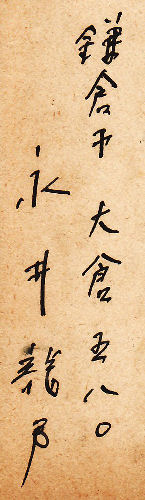 鎌倉市大倉五八〇
永井龍男